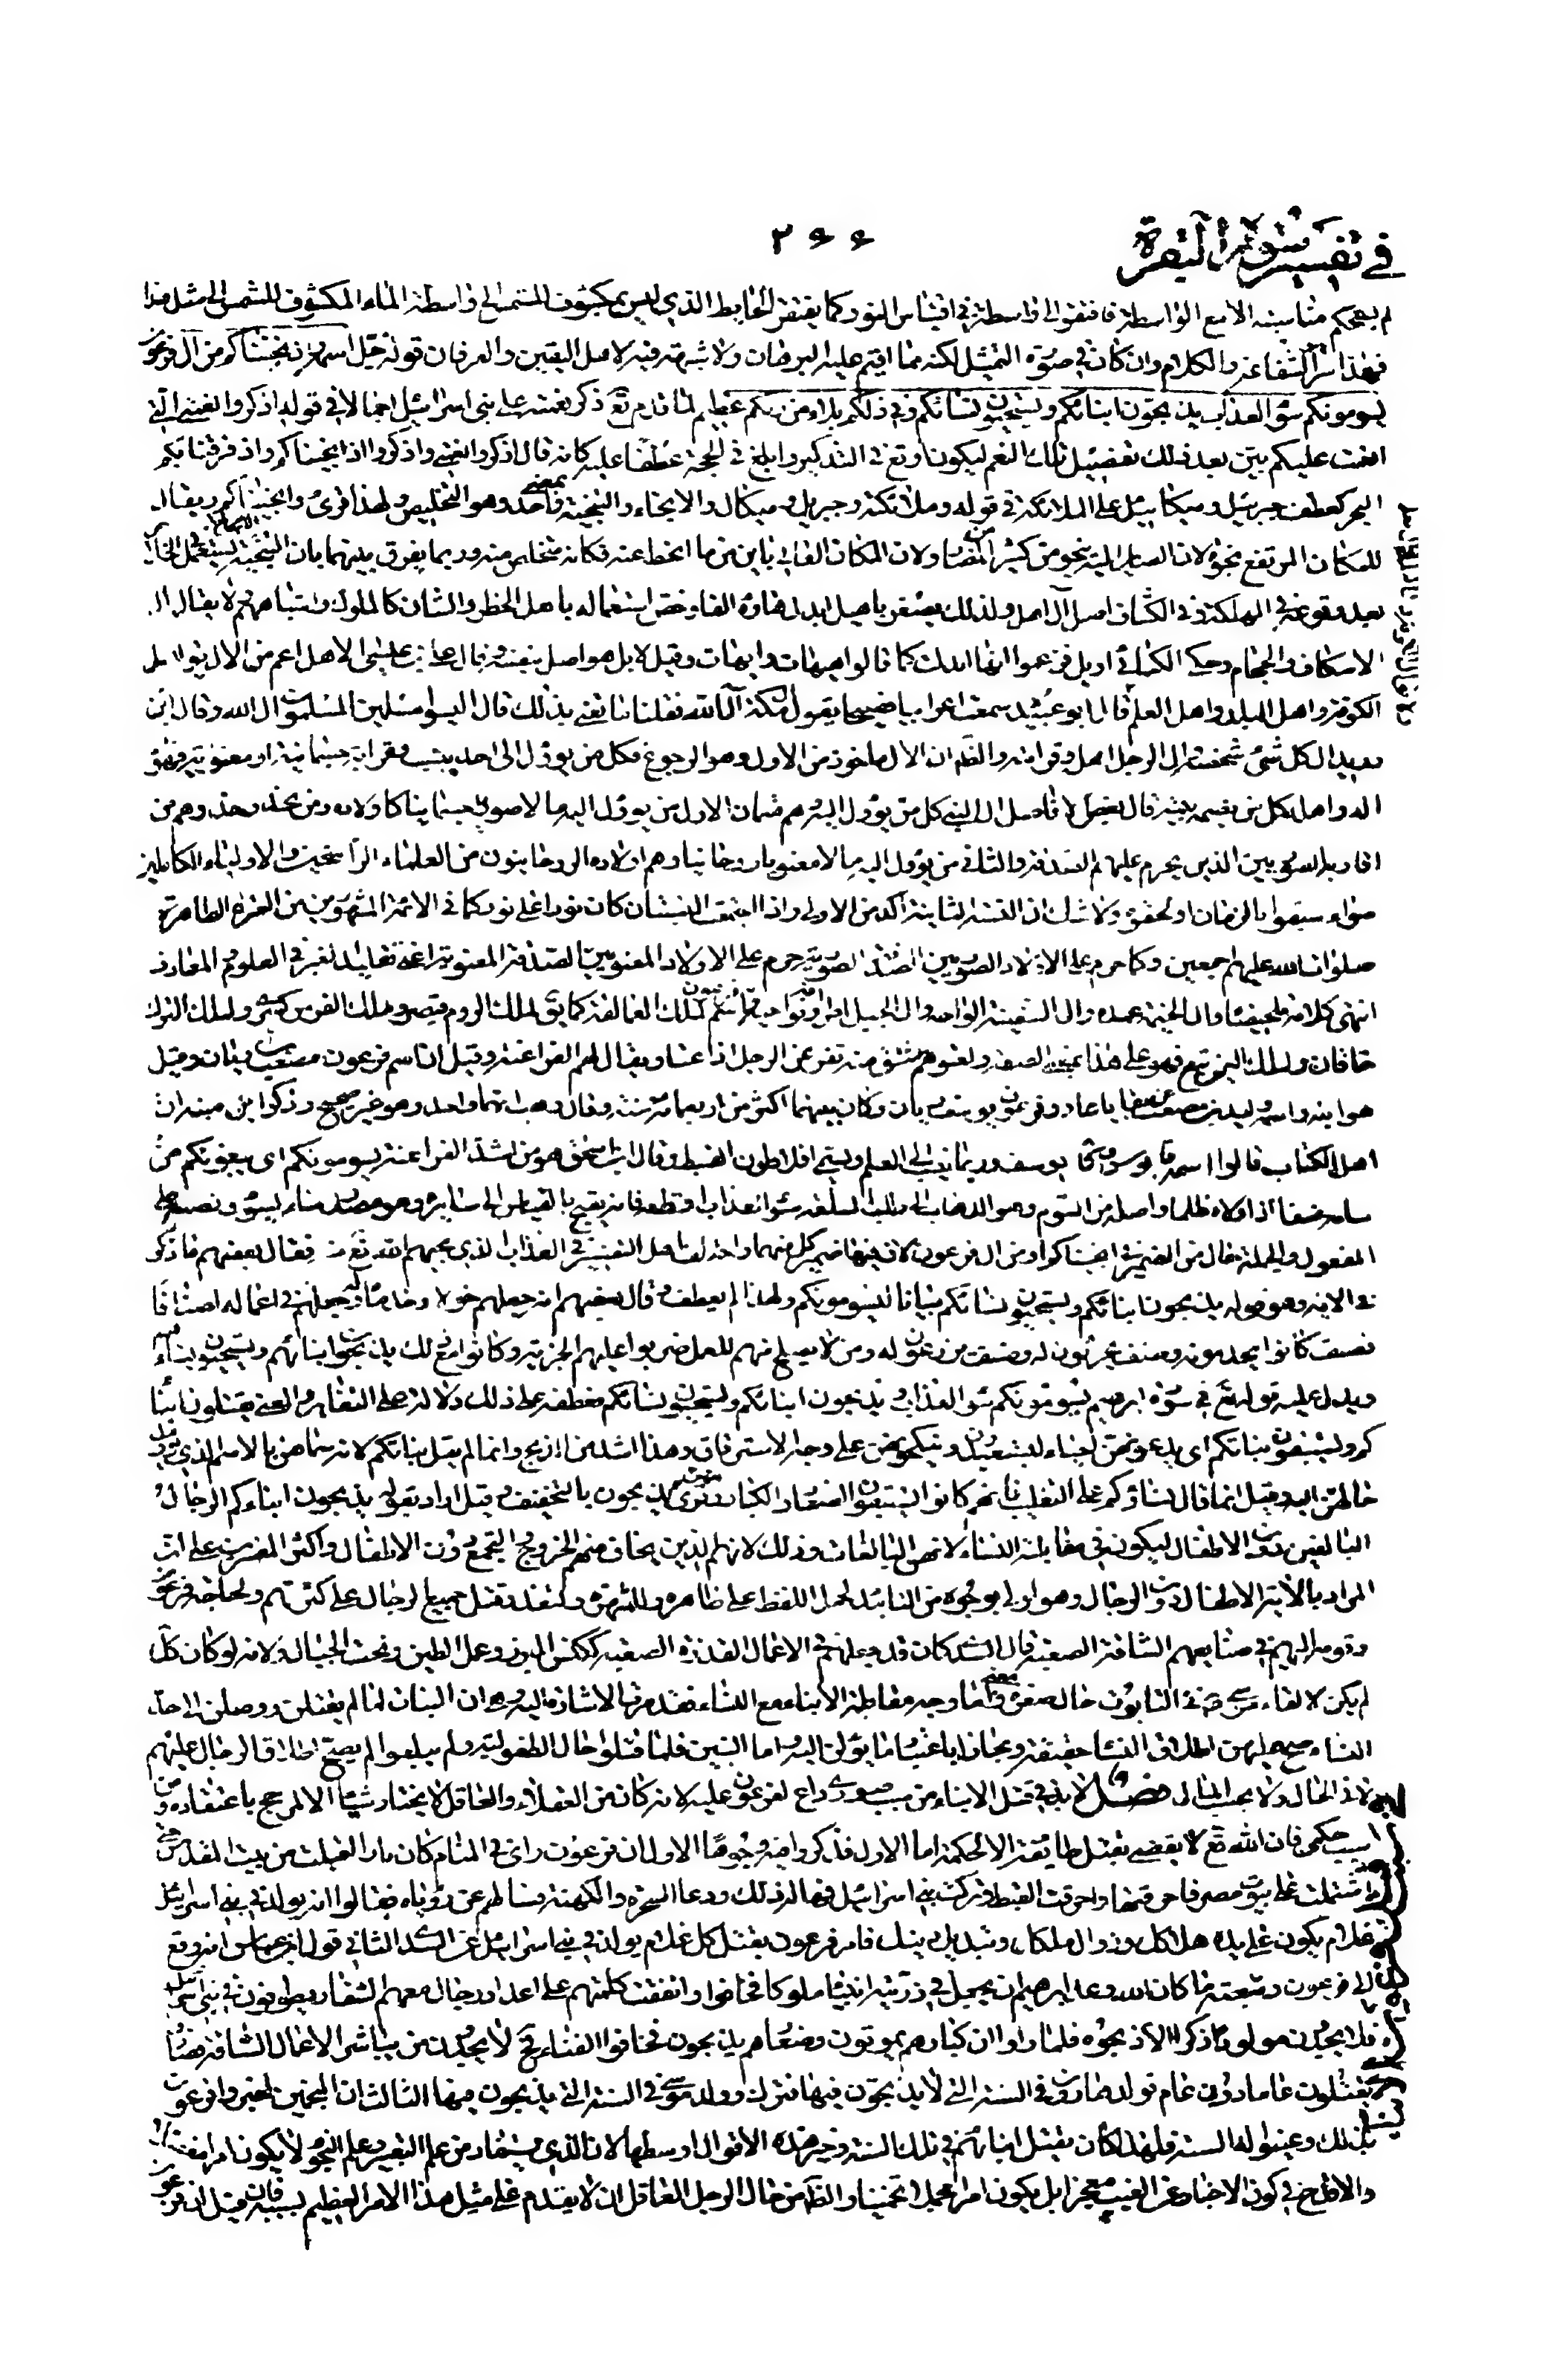 في تفسير سورة البقرة
٢٩٩
لم يستحكم مناسبته الا مع الواسطة فافتقر الى واسطة في اقتباس النور كما يفتقر الحايط الذي ليس بمكشوف للشمس الى واسطة الماء المكشوف للشمس الى مثل هذا
فهذا سر الشفاعة والكلام وان كان في صورة التمثيل لكنه مما اقيم عليه البرهان ولا شبهة فيه لاهل اليقين والعرفان قوله جل اسمه واذ نجيناكم من آل فرعون
يسومونكم سوء العذاب يذبحون ابنائكم ويستحيون نسائكم وفي ذلكم بلاء من ربكم عظيم لما قدم تع ذكر نعمته على بني اسرائيل اجمالا في قوله اذكروا نعمتي التي
انعمت عليكم بين بعد ذلك تفصيل تلك النعم ليكون اوقع في التذكير وابلغ في الحجة عطفا عليه كانه قال اذكروا نعمتي واذكروا اذ انجيناكم واذ فرقنا بكم
البحر كعطف جبرئيل وميكائيل على الملائكة في قوله وملائكته وجبريل وميكال والانجاء والتنجية بمعنى واحد وهو التخليص ولهذا قرئ وانجيناكم ويقال
للمكان المرتفع نجوة لان الصاير اليه ينجو من كثير من المضار ولان المكان العالي باين من ما انحط عنه فكانه متخلص منه وربما يفرق بينهما بان التنجية يستعمل في الخلاص
بعد وقوعه في الهلكة في الكشاف اصل آل اهل ولذلك يصغر باهيل ابدل هاؤه الفا وخص استعماله باهل الخطر والشان كالملوك واشباههم لا يقال ال
الاسكاف والحجام وحكى الكسائي اويل فزعموا انها ابدلت كما قالوا هيهات وايهات وقيل لا بل هو اصل بنفسه وقال علي بن عيسى الاهل اعم من الال يقال اهل
الكوفة واهل البلد واهل العلم قال ابو عبيد سمعت اعرابيا فصيحا يقول اهل مكة آل الله فقلنا ما تعني بذلك قال اليسوا مسلمين المسلمون ال الله وقال ابن
دريد ال كل شئ شخصه وال الرجل اهله وقرابته والظ ان الال ماخوذ من الاول وهو الرجوع فكل من يؤول الى احد بنسب وقرابة جسمانية او معنوية فهو
اله واهل كل من يضمه بيته قال بعض الافاضل ال النبي كل من يؤول اليه وهم قسمان الاول من يؤول اليه مالا صوريا جسمانيا كاولاده ومن يحذو حذوهم من
اقاربه الصوريين الذين يحرم عليهم الصدقة والثاني من يؤول اليه مالا معنويا روحانيا وهم اولاده الروحانيون من العلماء الراسخين والاولياء الكاملين
سواء سبقوا بالزمان او لحقوه ولا شك ان النسبة الثانية اكد من الاولى واذا اجتمعت النسبتان كان نورا على نور كما في الائمة المشهورين من العترة الطاهرة
صلوات الله عليهم اجمعين وكما حرم على الاولاد الصوريين الصدقة الصورية حرم على الاولاد المعنويين الصدقة المعنوية اعني تقليد الغير في العلوم والمعارف
انتهى كلامه ملخصا وال الخيمة عمده وال السفينة الواحه وال الجبل اطرافه ونواحيه وفرعون اسم لملك العمالقة كما يق لملك الروم قيصر وملك الفرس كسرى ولملك الترك
خاقان ولملك اليمن تبع فهو على هذا بمعنى الصفة ولعتوهم اشتق منه تفرعن الرجل اذا عتا ويقال لهم الفراعنة وقيل ان اسم فرعون مصعب بن ريان وقيل
هو ابنه واسمه وليد من بقايا عاد وفرعون يوسف ريان وكان بينهما اكثر من اربعمائة سنة وقال وهب انهما واحد وهو غير صحيح وذكر ابن منبه ان
اهل الكتاب قالوا اسمه قابوس
المفعول والجملة حال من الضمير في انجيناكم او من ال فرعون لان فيها ضمير كل منهما واختلف اهل التفسير في العذاب الذي نجيهم الله تع منه فقال بعضهم ما ذكر
في الاية وهو قوله يذبحون ابنائكم ويستحيون نسائكم بيانا ليسومونكم ولهذا لم يعطف وقال بعضهم انه جعلهم خولا وخدما وجعلهم في اعماله اصنافا
فصنف كانوا يخدمونه وصنف يحرثون له وصنف يزرعون له ومن لا يصلح منهم للعمل ضربوا عليهم الجزية وكانوا مع ذلك يذبحون ابنائهم ويستحيون نسائهم
ويدل عليه قوله تع في سورة ابرهيم يسومونكم سوء العذاب ويذبحون ابنائكم ويستحيون نسائكم فعطفه على ذلك دلالة على التغاير والمعنى يقتلون ابنا
ئكم ويستبقون بناتكم اي يدعونهن احياء ليستعبدن وينكحونهن على وجه الاسترقاق وهذا اشد من الذبح وانما لم يقل بناتكم لانه سماهن بالاسم الذي يؤول
حالهن اليه وقيل انما قال نساؤكم على التغليب فانهم كانوا يستبقون الصغار والكبار وقرئ يذبحون بالتخفيف قيل اراد بقوله يذبحون ابناءكم الرجال
البالغين دون الاطفال ليكون في مقابلة النساء لانهن البالغات وذلك لانهم الذين يخاف منهم الخروج والتجمع دون الاطفال واكثر المفسرين على ان
المراد بالاية الاطفال دون الرجال وهو اولى بوجوه من التائيد لحمل اللفظ على ظاهره وللشهرة ولتعذر قتل جميع الرجال على كثرتهم ولحاجة فرعون
وقومه اليهم في صنايعهم الشاقة الصعبة قال السدي كان قد جعلهم في الاعمال القذرة الصعبة ككنس المبرز وعمل الطين ونحت الجبال ولانه لو كان كذلك
لم يكن لالقاء موسى في التابوت حال صغره معنى واما وجه مقابلة الابناء مع النساء فقد مر الاشارة اليه وهو ان البنات لما لم يقتلن ووصلن الى حد
النساء صح عليهن اطلاق النساء حقيقة ومجازا باعتبار ما يؤلن اليه واما البنين فلما قتلوا حال الطفولية ولم يبلغوا لم يصح اطلاق الرجال عليهم
لا في الحال ولا بحسب المال فصل لابد في قتل الابناء من سبب صوري داع لفرعون عليه لانه كان من العقلاء والعاقل لا يختار شيئا الا لمرجح باعتقاده ومن
سبب حكمي فان الله تع لا يقضي بقتل طايفة الا لحكمة اما الاول فذكروا فيه وجوها الاول ان فرعون راى في المنام كان نارا اقبلت من بيت المقدس حتى
اشتملت على بيوت مصر فاحرقتها واحرقت القبط وتركت بني اسرائيل فهاله ذلك ودعا السحرة والكهنة وسالهم عن رؤياه فقالوا انه يولد في بني اسرائيل
غلام يكون على يده هلاكك وزوال ملكك وتبديل دينك فامر فرعون بقتل كل غلام يولد في بني اسرائيل عن السدي الثاني قول ابن عباس انه وقع
الى فرعون وتبعته ما كان الله وعد ابرهيم ان يجعل في ذريته انبياء ملوكا فخافوا واتفقت كلمتهم على اعداد رجال معهم الشفار يطوفون في بني اسرائيل
فلا يجدون مولودا ذكرا الا ذبحوه فلما راوا ان كبارهم يموتون وصغارهم يذبحون فخافوا الفناء فح لا يجدون من يباشر الاعمال الشاقة فصاروا
يقتلون عاما دون عام فولد هارون في السنة التي لا يذبحون فيها فترك وولد موسى في السنة التي يذبحون فيها الثالث ان المنجمين اخبروا فرعون
بذلك وعينوا له السنة فلهذا كان يقتل ابنائهم في تلك السنة وخير هذه الاقوال اوسطها لان الذي يستفاد من علم التعبير وعلم النجوم لا يكون امرا مفصلا
والا قدح في كون الاخبار عن الغيب معجزا بل يكون امرا مجملا تخمينا والظ من حال الرجل العاقل ان لا يقدم على مثل هذا الامر العظيم بسببه فان قيل ان فرعون